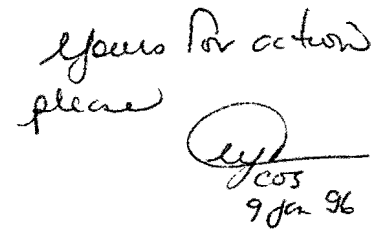 Yours for action
please
COS
9 Jan 96